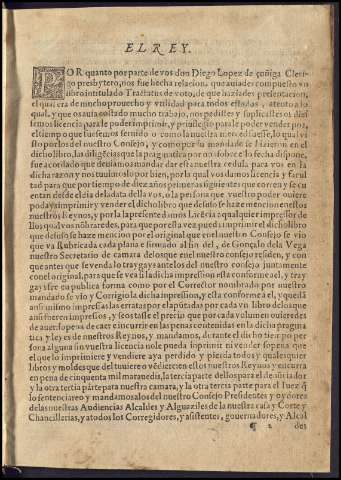 EL REY.
POR quanto por parte de vos don Diego Lopez de çuñiga Cleri-
go presbytero, nos fue hecha relacion, que auiades compuesto vn
libro intitulado Tractatus de voto, de que haziades presentacion,
el qual era de mucho prouecho y vtilidad para todos estados, atento a lo
qual, y que os auia costado mucho trabajo, nos pedistes y suplicastes os dies
semos licencia, para le poder imprimir, y priuilegio para le poder vender por
el tiempo que fuessemos seruido o como la nuestra merced fuesse, lo qual vi
sto por los del nuestro Consejo, y como por su mandado se hizieron en el
dicho libro, las diligẽcias que la pragmatica por nos fecho dispone,
fue acordado que deuiamos mandar dar esta nuestra cedula para vos en la
dicha razon y nos tuuimoslo por bien, por la qual vos damos licencia y facul
tad para que por tiempo de diez años primeros siguientes que corren y se cu
entan desde el dia de la data, o la persona que vuestro poder ouiere
podays imprimir y vender el dicho libro que desuso se haze mencion en estos
nuestros Reynos, y por la presente damos Licẽcia a qualquier impressor de
llos qual vos nõbraredes, para que por esta vez pueda imprimir el dicho libro
que desuso se haze mencion por el original que en el nuestro Consejo se vio
que va Rubricada cada plana e firmado al fin del, de Gonçalo dela Vega
nuestro Secretario de camara de los que en el nuestro consejo residen, y con
que antes que se venda lo traygays ante los del nuestro consejo juntamente
con el original, para que se vea si la dicha impression esta conforme a el, y tray
gays fee en publica forma como por el Corrector nombrado por nuestro
mandado se vio y Corrigio la dicha impression, y esta conforme a el, y que
ansi mismo impressas las erratas por el apũtadas por cada vn libro de los que
ansi fueren impressos, y se os tasse el precio que por cada volumen ouieredes
de auer so pena de caer e incurrir en las penas contenidas en la dicha pragma
tica y leyes de nuestros Reynos, y mandamos, durante el dicho tiempo per
sona alguna sin vuestra licencia no le pueda imprimir ni vender so pena que
el que lo imprimiere y vendiere aya perdido y pierda todos y qualesquier
libros y moldes que del tuuiere en estos nuestros Reynos y incurra
en pena de cinquenta mil marauedis, la tercia parte dellos para el denũciador
y la otra tercia parte para nuestra camara, y la otra tercia parte para el Iuez q̃
lo sentenciare y mandamos a los del nuestro Consejo Presidentes y oydores
de las nuestras Audiencias Alcaldes y Alguaziles de la nuestra casa y Corte y
Chancillerias, y a todos los Corregidores, y asistentes, gouernadores, y Alcal
¶ 2 des